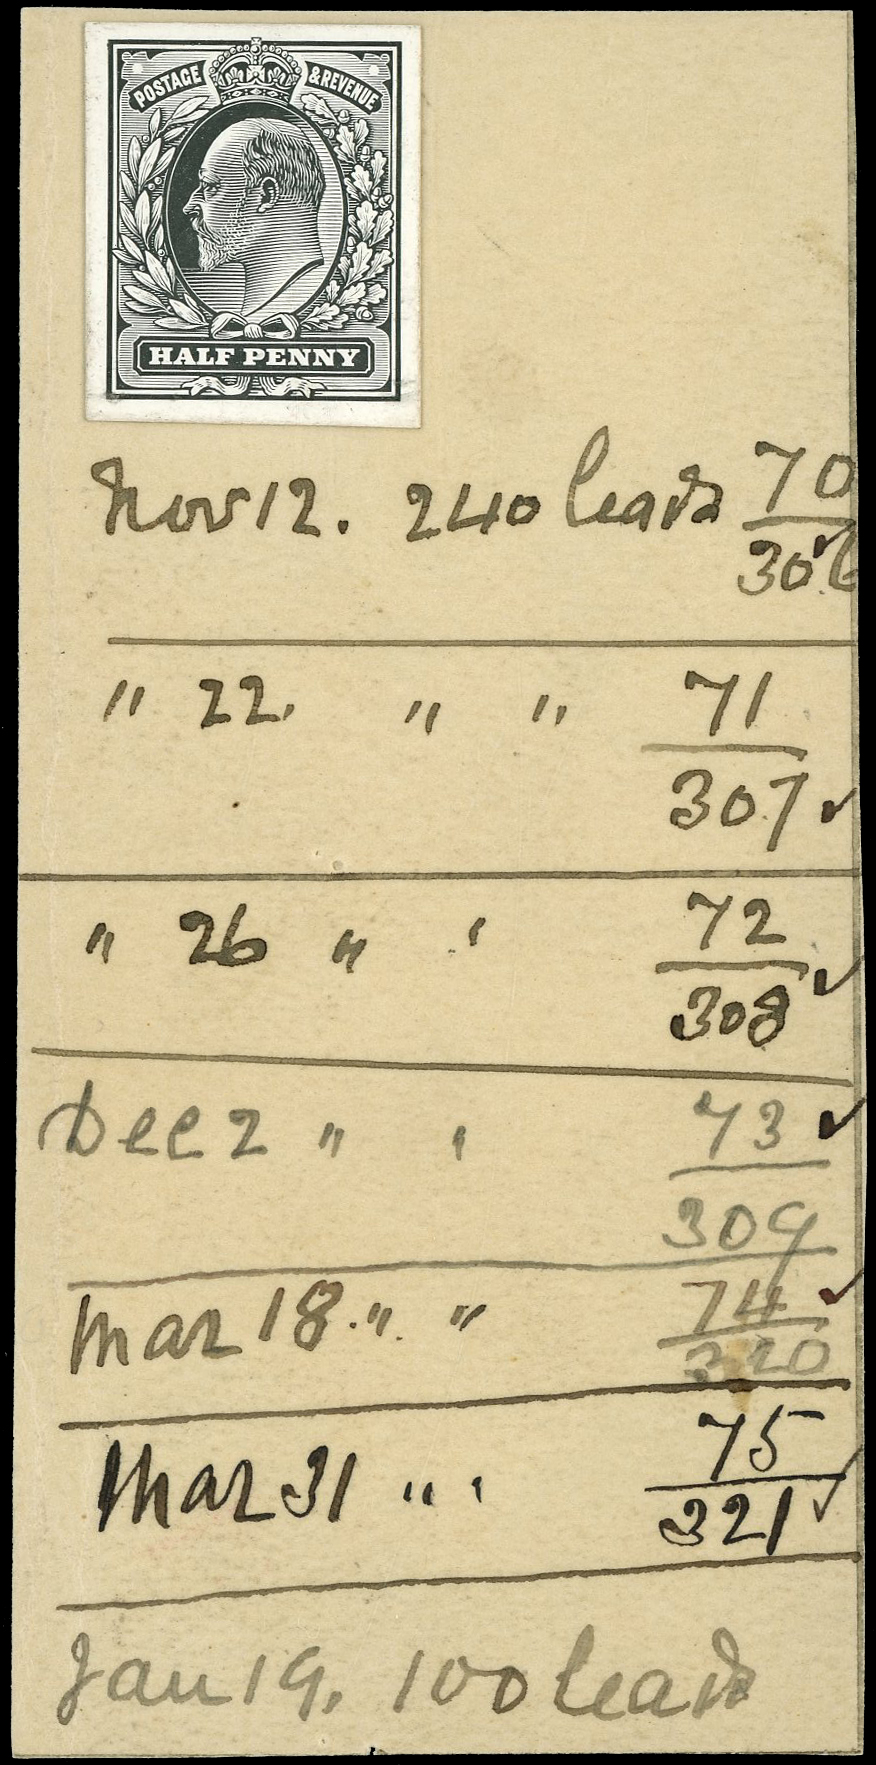 POSTAGE & REVENUE
HALF PENNY
Nov 12. 240 leads 70
306 ✓
" 22. " " 71
307 ✓
" 26 " ' 72
308 ✓
Dec 2 " ' 73 ✓
309
Mar 18. " " 74 ✓
320
Mar 31 " ' 75
321 ✓
Jan 19. 100 leads